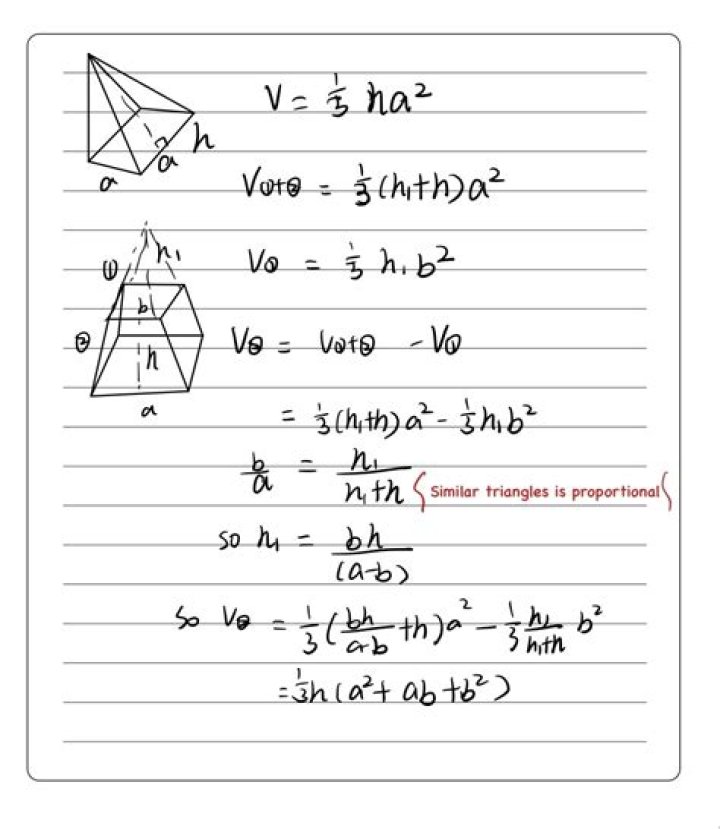 V = 1/3 ha²
h
a
a
V①+② = 1/3 (h₁+h)a²
h₁
①
V① = 1/3 h₁b²
b
②
h
V② = V①+② - V①
a
= 1/3 (h₁+h)a² - 1/3 h₁b²
b/a = h₁/(h₁+h) { Similar triangles is proportional {
so h₁ = bh/(a-b)
So V② = 1/3 (bh/(a-b) + h)a² - 1/3 h₁/(h₁+h) b²
= 1/3 h (a² + ab + b²)